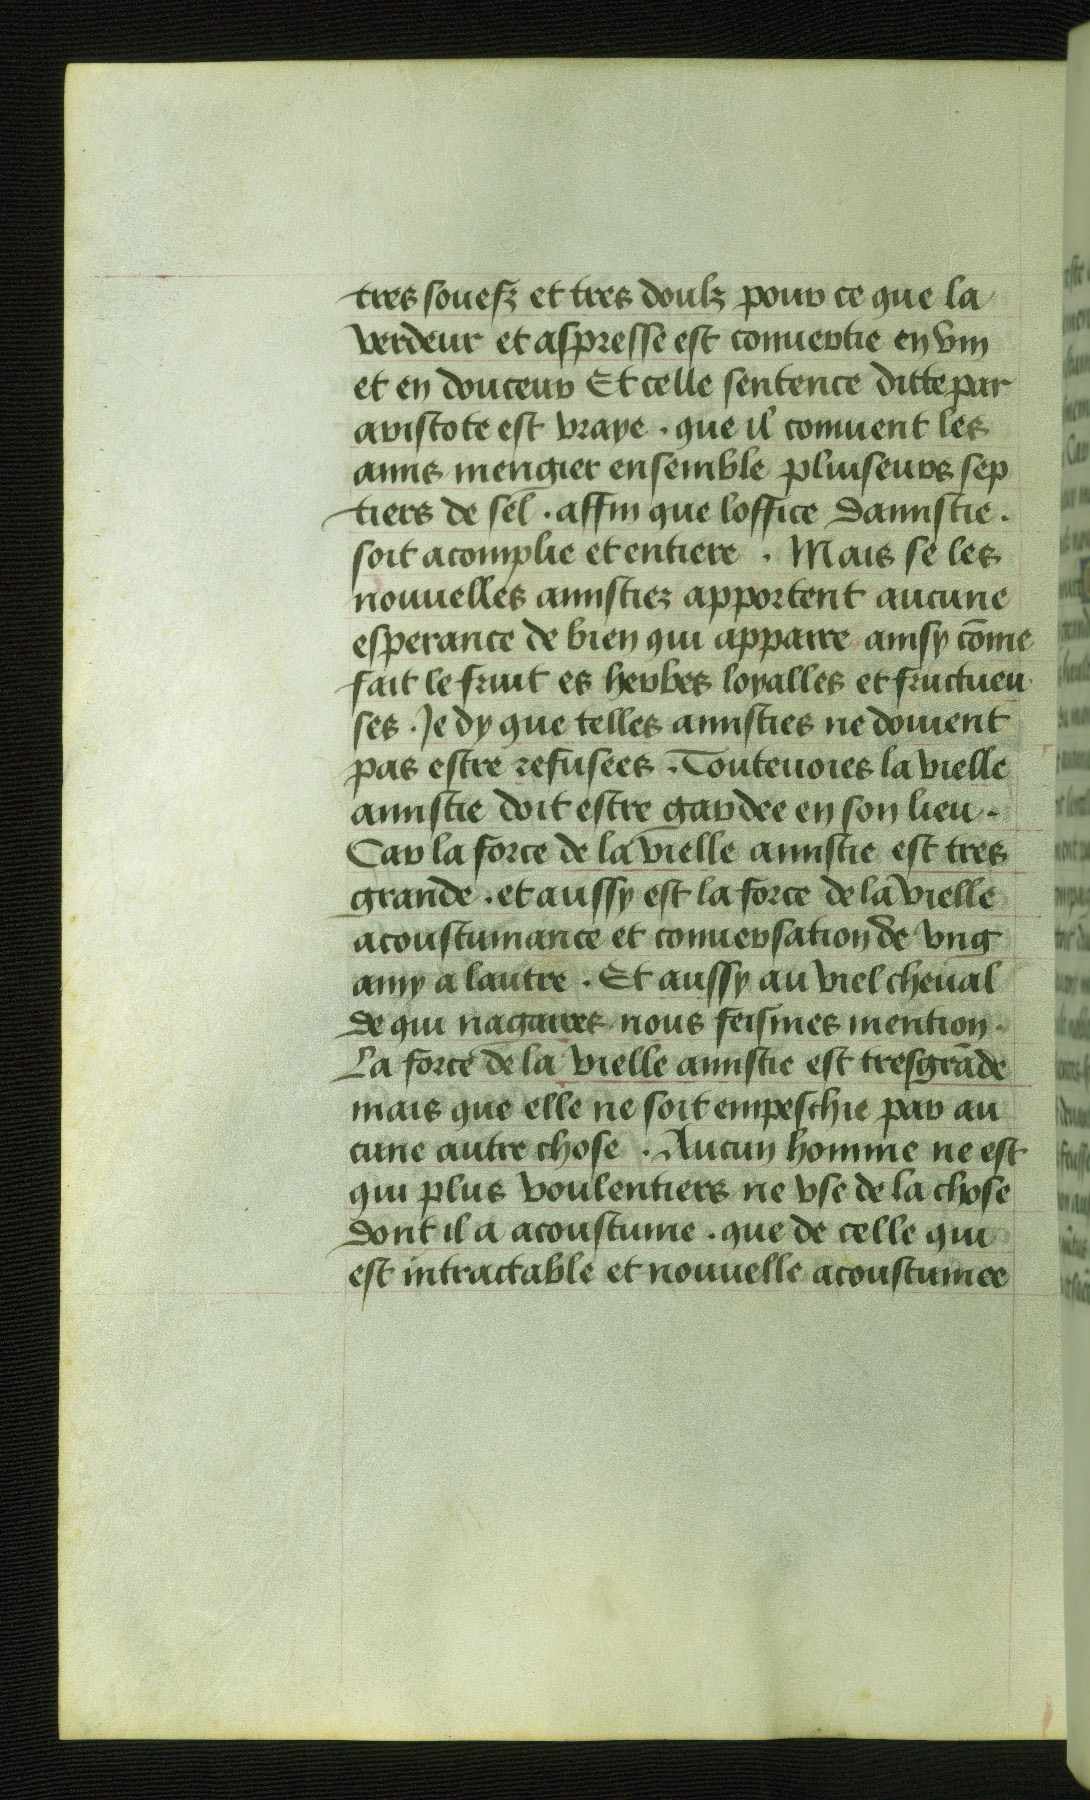 tres souefz et tres doulz pour ce que la
verdeur et aspresse est conuertie en vin
et en douceur Et celle sentence ditte par
aristote est vraye . que il conuient les
amis mengier ensemble pluiseurs sep
tiers de sel . affin que loffice damistie .
soit acomplie et entiere . Mais se les
nouuelles amistiez apportent aucune
esperance de bien qui apparre ainsy cõme
fait le fruit es herbes loyalles et fructueu
ses . Je dy que telles amisties ne doiuent
pas estre refusees . Touteuoies la vielle
amistie doit estre gardee en son lieu .
Car la force de la vielle amistie est tres
grande . et aussy est la force de la vielle
acoustumance et conuersation de vng
amy a lautre . Et aussy au viel cheual
de qui nagaires nous feismes mention .
La force de la vielle amistie est tresgrãde
mais que elle ne soit empeschie par au
cune autre chose . Aucun homme ne est
qui plus voulentiers ne vse de la chose
dont il a acoustume . que de celle qui
est intractable et nouuelle acoustumee